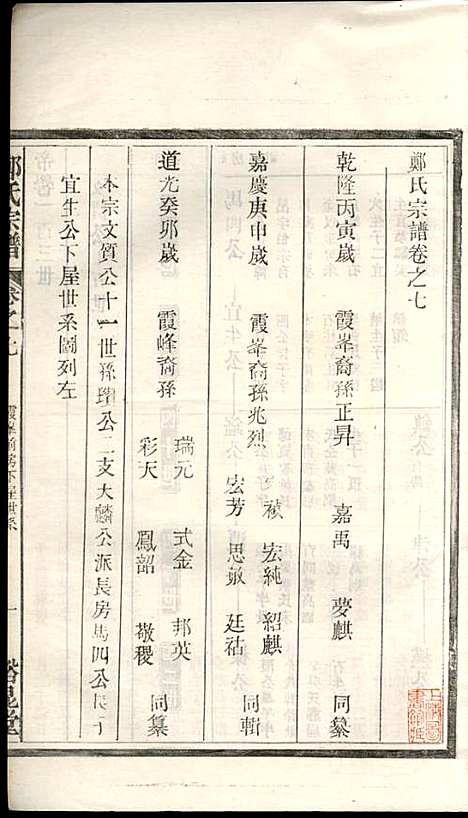 鄭氏宗譜卷之七
乾隆丙寅歲　霞峯裔孫正昇　嘉禹　夢麒　同纂
嘉慶庚申歲　霞峯裔孫兆烈
禎　宏純　紹麒
宏芳　思敏　廷祜
同輯
道光癸卯歲　霞峰裔孫
瑞元　式金　邦英
彩天　鳳韶　敬稷
同纂
本宗文質公十一世孫瓚公二支大麟公派長房馬四公長子
宜生公下屋世系圖列左
鄭氏宗譜
卷之七
霞峯前房下屋世系
一
裕昆堂